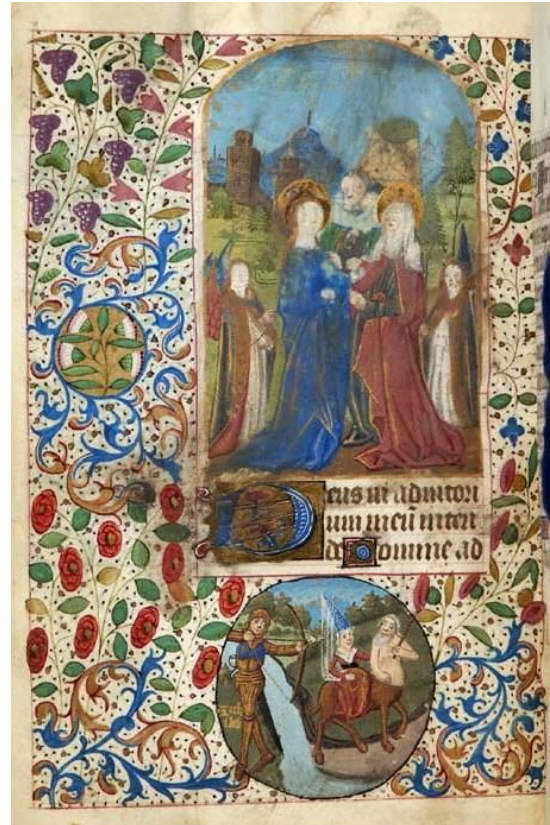 Deus in adiutori
um meū inten
de Domine ad